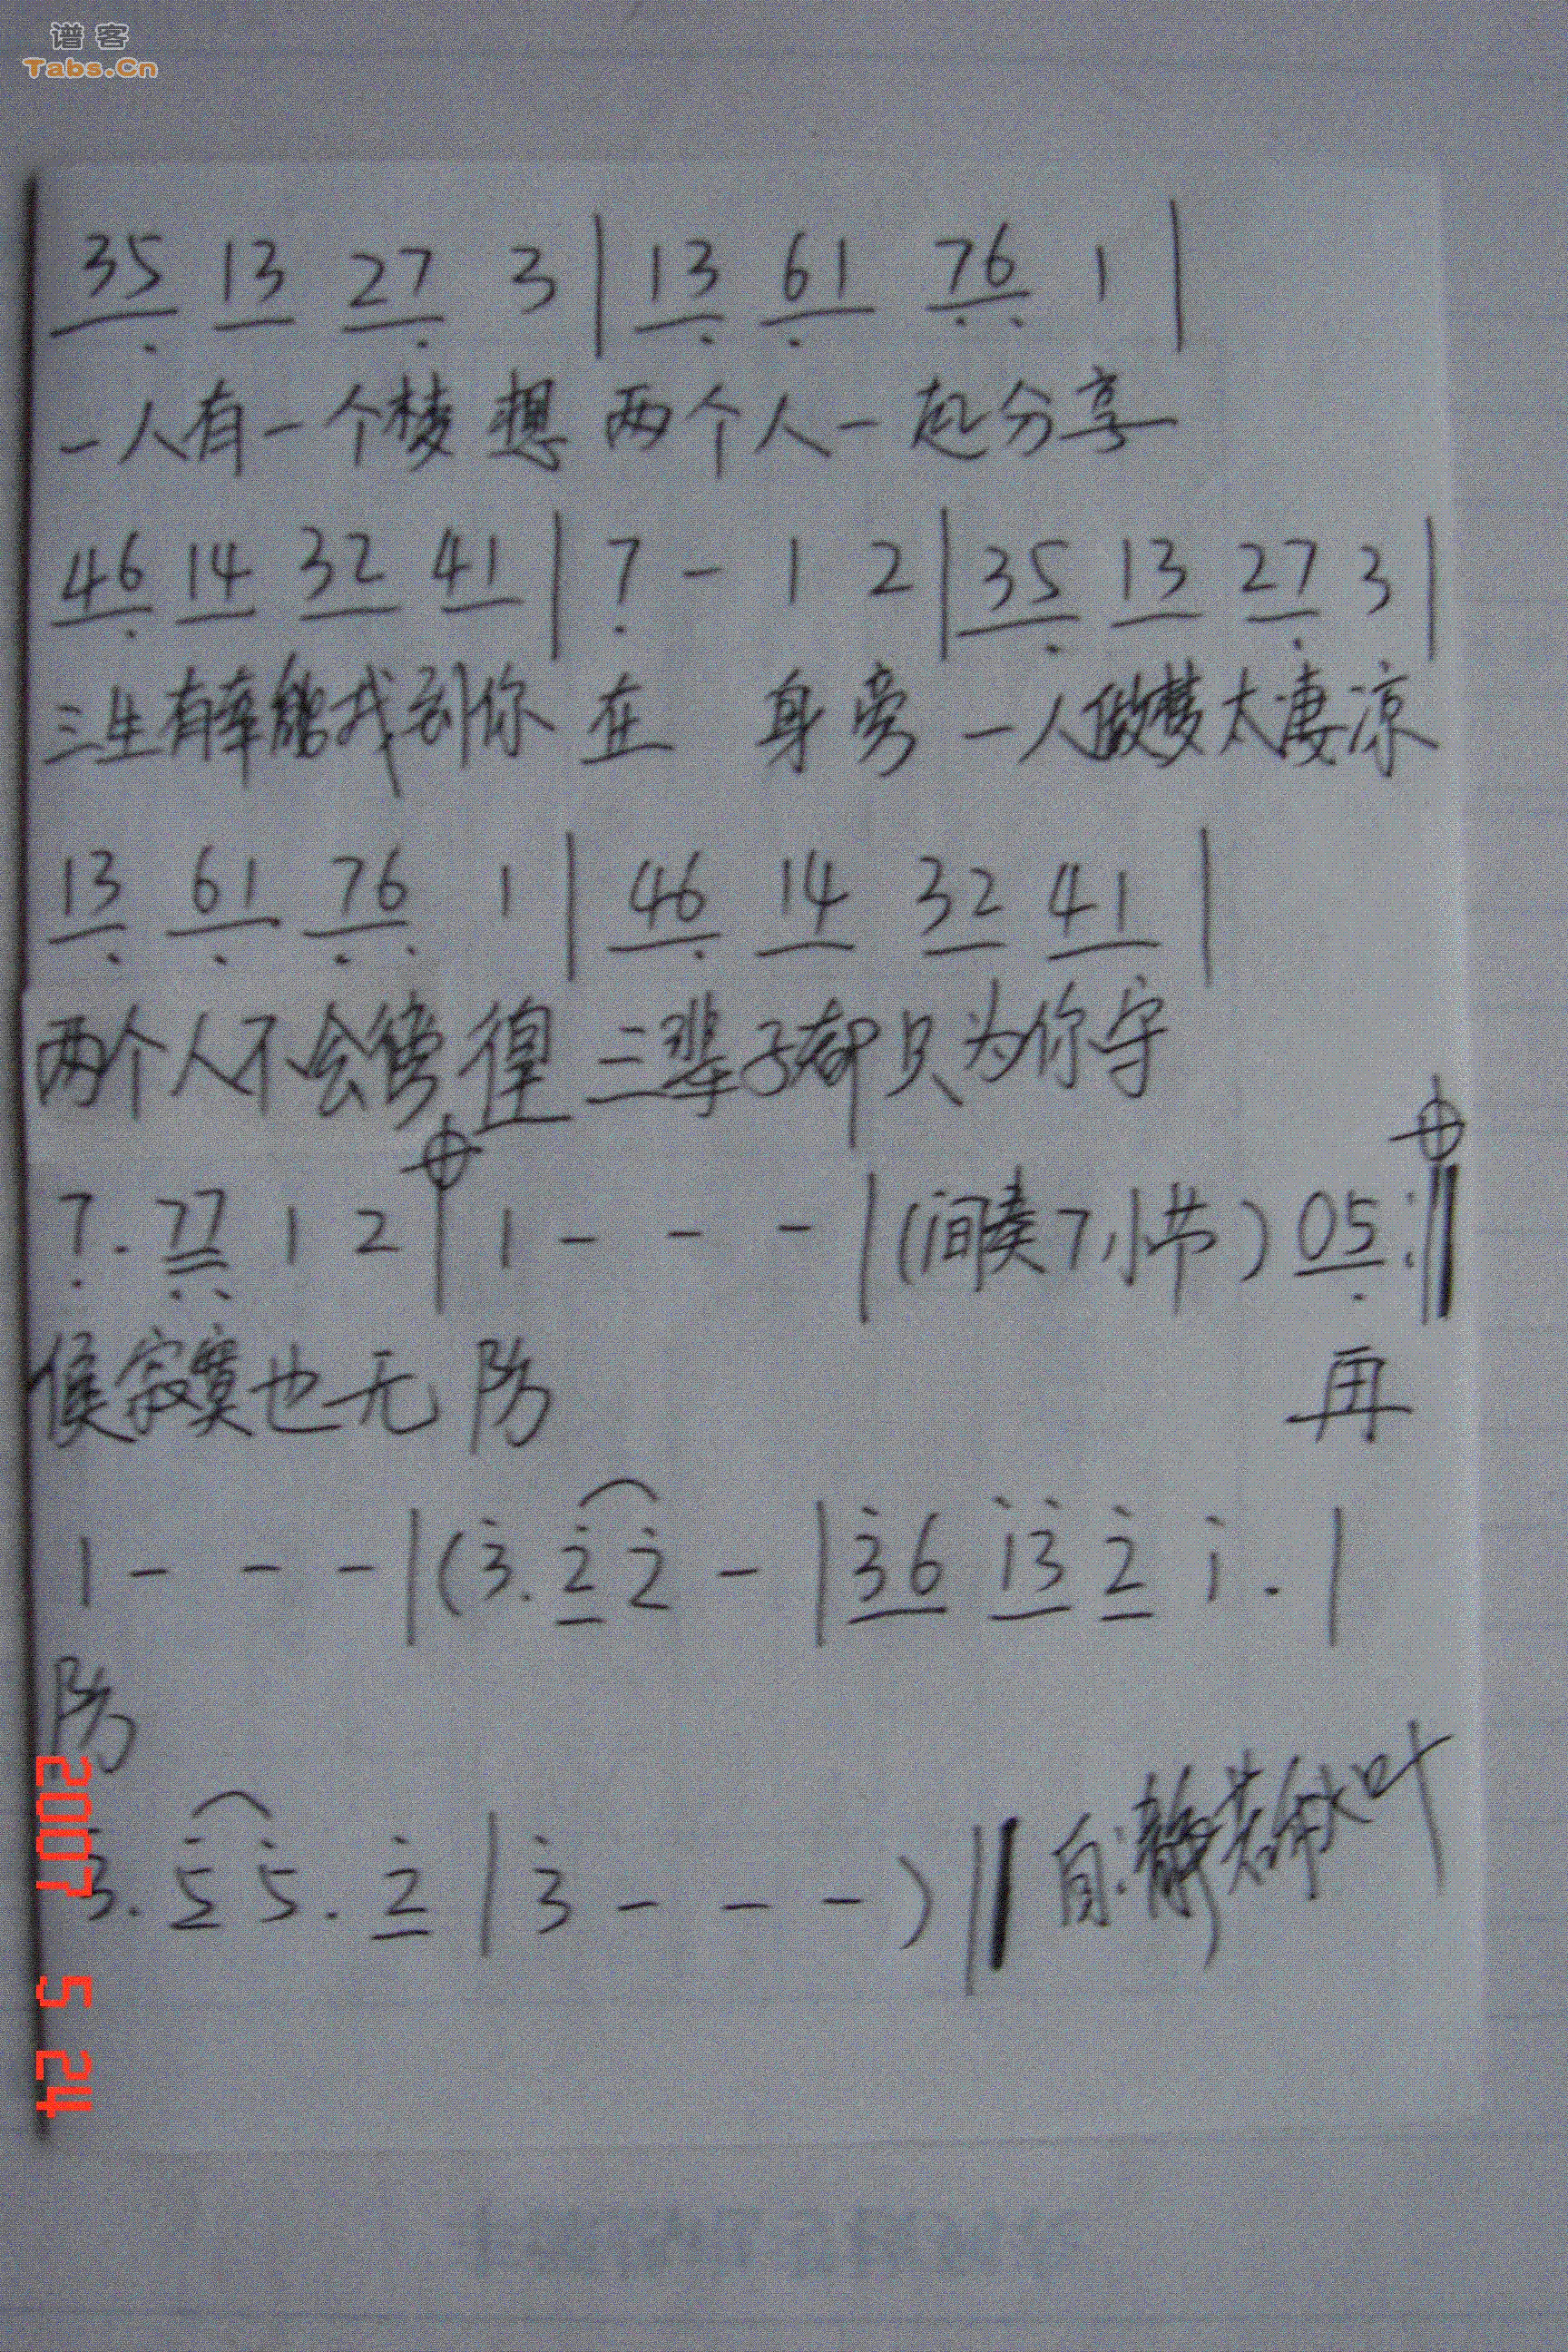 谱客
Tabs.Cn
35 13 27 3 | 13 61 76 1 |
一人有一个梦想 两个人一起分享
46 14 32 41 | 7 - 1 2 | 35 13 27 3 |
三生有幸能找到你在 身旁 一人做梦太凄凉
13 61 76 1 | 46 14 32 41 |
两个人不会彷徨 三辈子都只为你守
7. 77 1 2 | 1 - - - | (间奏7小节) 05 :‖
候寂寞也无防 再
1 - - - | (3. 2 2 - | 36 13 2 1. |
防
3. 5 5. 2 | 3 - - - ) ‖ 自:静若秋叶
2007 5 24